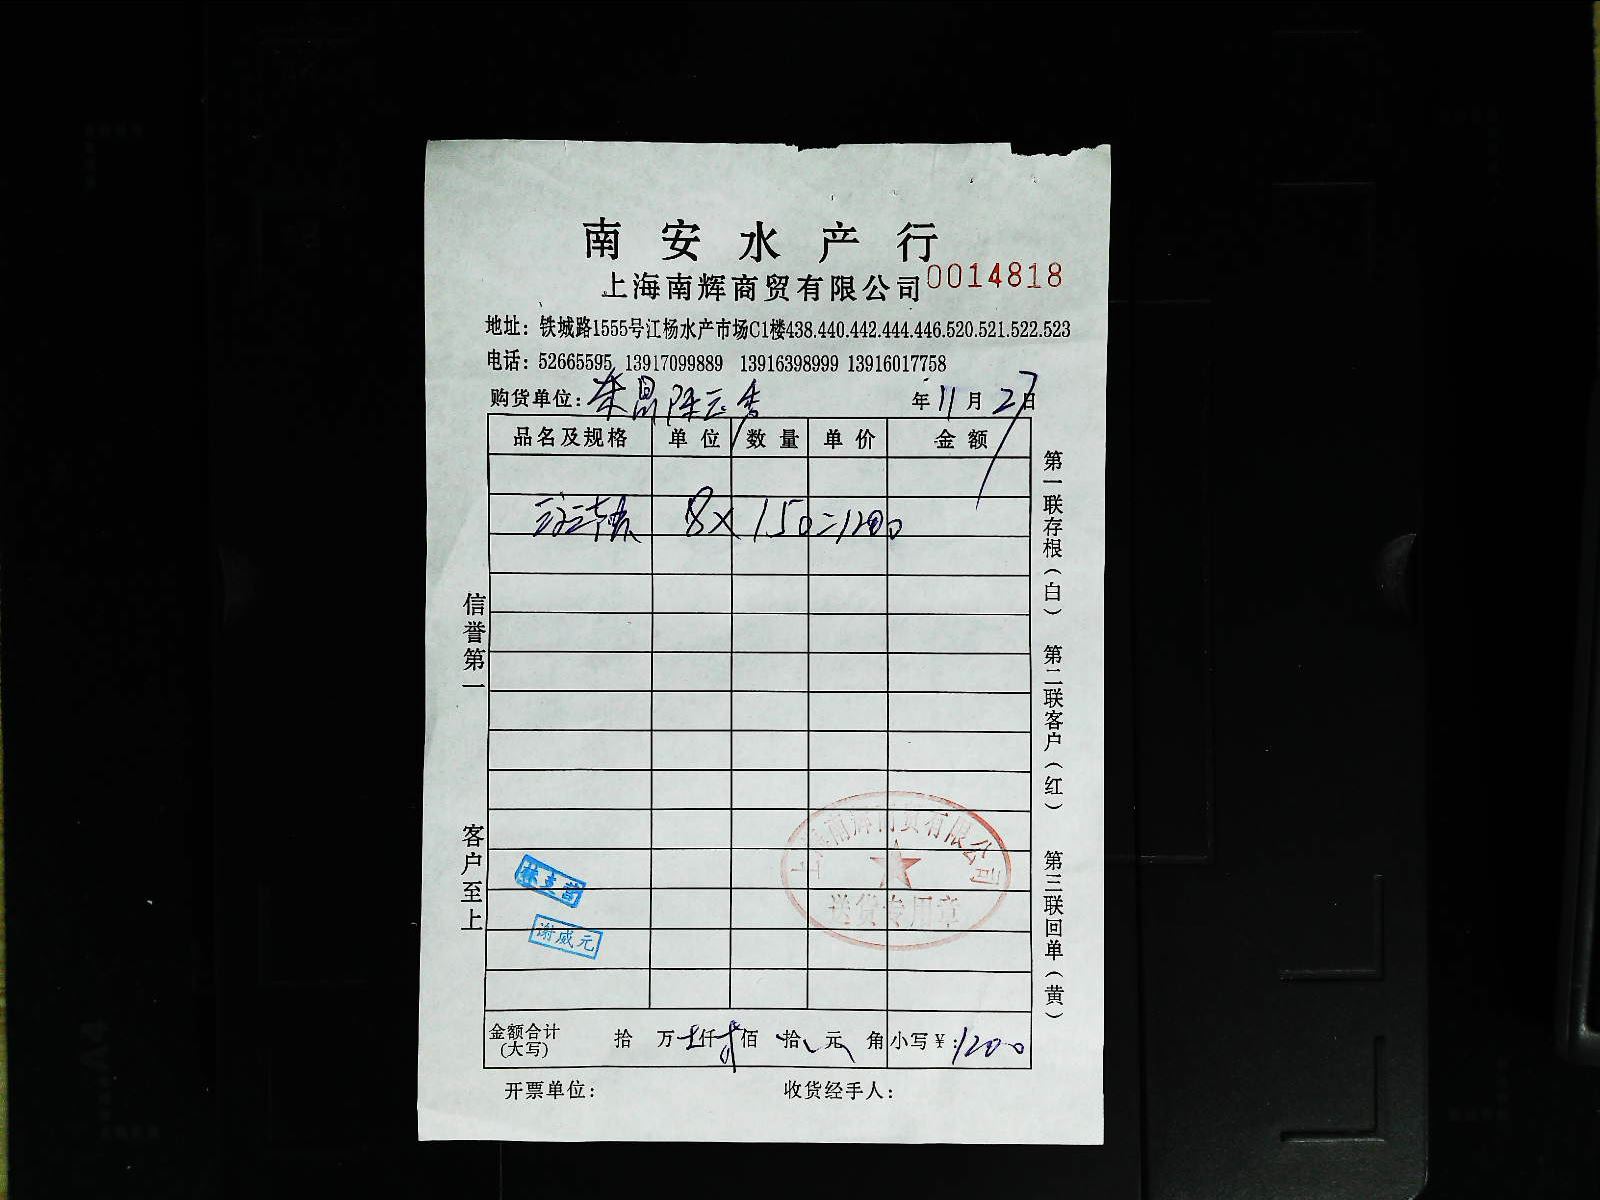 南安水产行
上海南辉商贸有限公司 0014818
地址：铁城路1555号江杨水产市场C1楼438.440.442.444.446.520.521.522.523
电话：52665595 13917099889 13916398999 13916017758
购货单位： 年 11 月 27 日
品名及规格 单位 数量 单价 金额
8×150=1200
信誉第一
客户至上
第一联存根（白）
第二联客户（红）
第三联回单（黄）
上海南辉商贸有限公司
送货专用章
谢威元
金额合计(大写) 拾 万 仟 佰 拾 元 角 小写￥：1200
开票单位： 收货经手人：